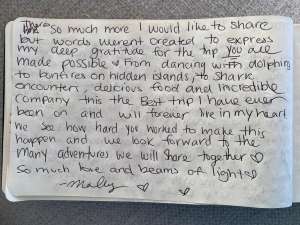 There so much more I would like to share
but words werent created to express
my deep gratitude for the trip you are
made possible ♡ From dancing with dolphins
to bonfires on hidden islands, to shark
encounters, delicious food and incredible
company this the Best trip I have ever
been on and will forever live in my heart
We see how hard you worked to make this
happen and we look forward to the
many adventures we will share together ♡
So much love and beams of light ♡
~ ♡ ♡